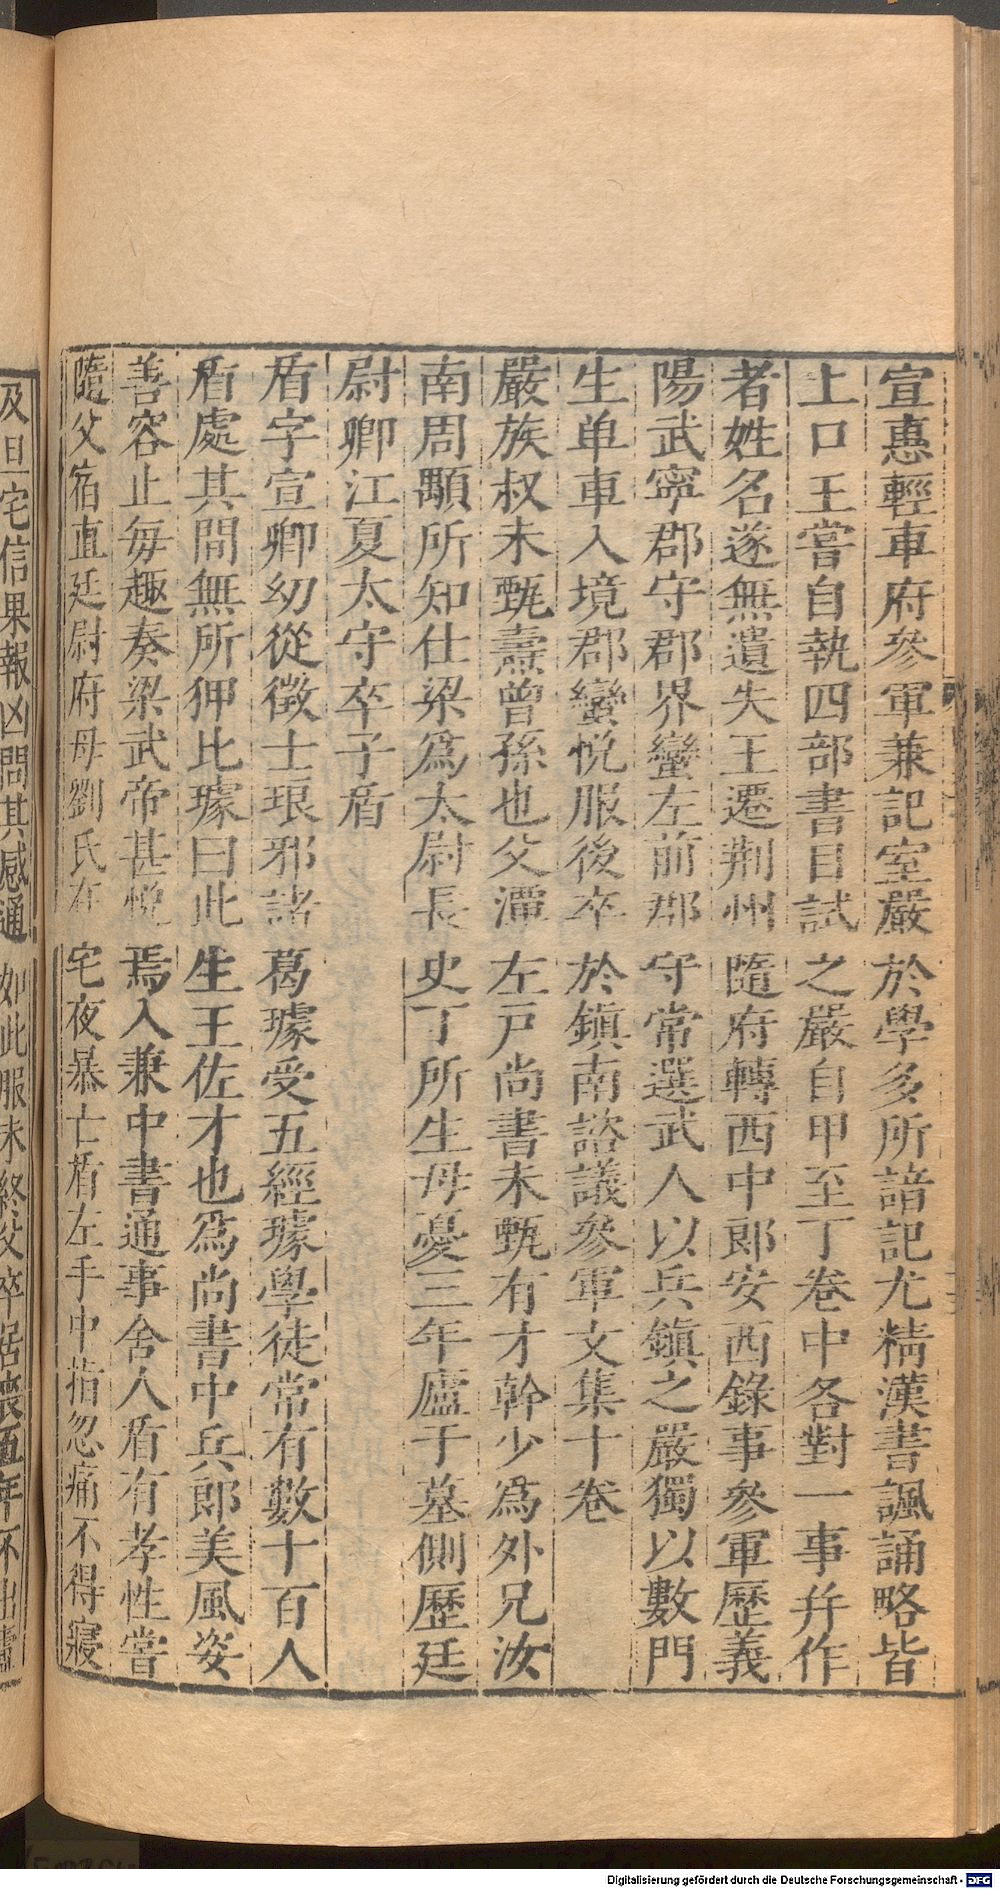 宣惠輕車府參軍兼記室嚴於學多所諳記尤精漢書諷誦略皆
上口王嘗自執四部書目試之嚴自甲至丁卷中各對一事并作
者姓名遂無遺失王遷荆州隨府轉西中郎安西錄事參軍歷義
陽武寧郡守郡界蠻左前郡守常選武人以兵鎮之嚴獨以數門
生单車入境郡蠻悅服後卒於鎮南諮議參軍文集十卷
嚴族叔未甄燾曾孫也父潭左戸尚書未甄有才幹少爲外兄汝
南周顒所知仕梁爲太尉長史丁所生母憂三年廬于墓側歷廷
尉卿江夏太守卒子盾
盾字宣卿幼從徵士琅邪諸葛璩受五經璩學徒常有數十百人
盾處其間無所狎比璩曰此生王佐才也爲尚書中兵郎美風姿
善容止每趣奏梁武帝甚悅焉入兼中書通事舍人盾有孝性嘗
隨父宿直廷尉府母劉氏在宅夜暴亡盾左手中指忽痛不得寢
及旦宅信果報凶問其感通如此服未終父卒居喪五年不出廬
Digitalisierung gefördert durch die Deutsche Forschungsgemeinschaft - DFG